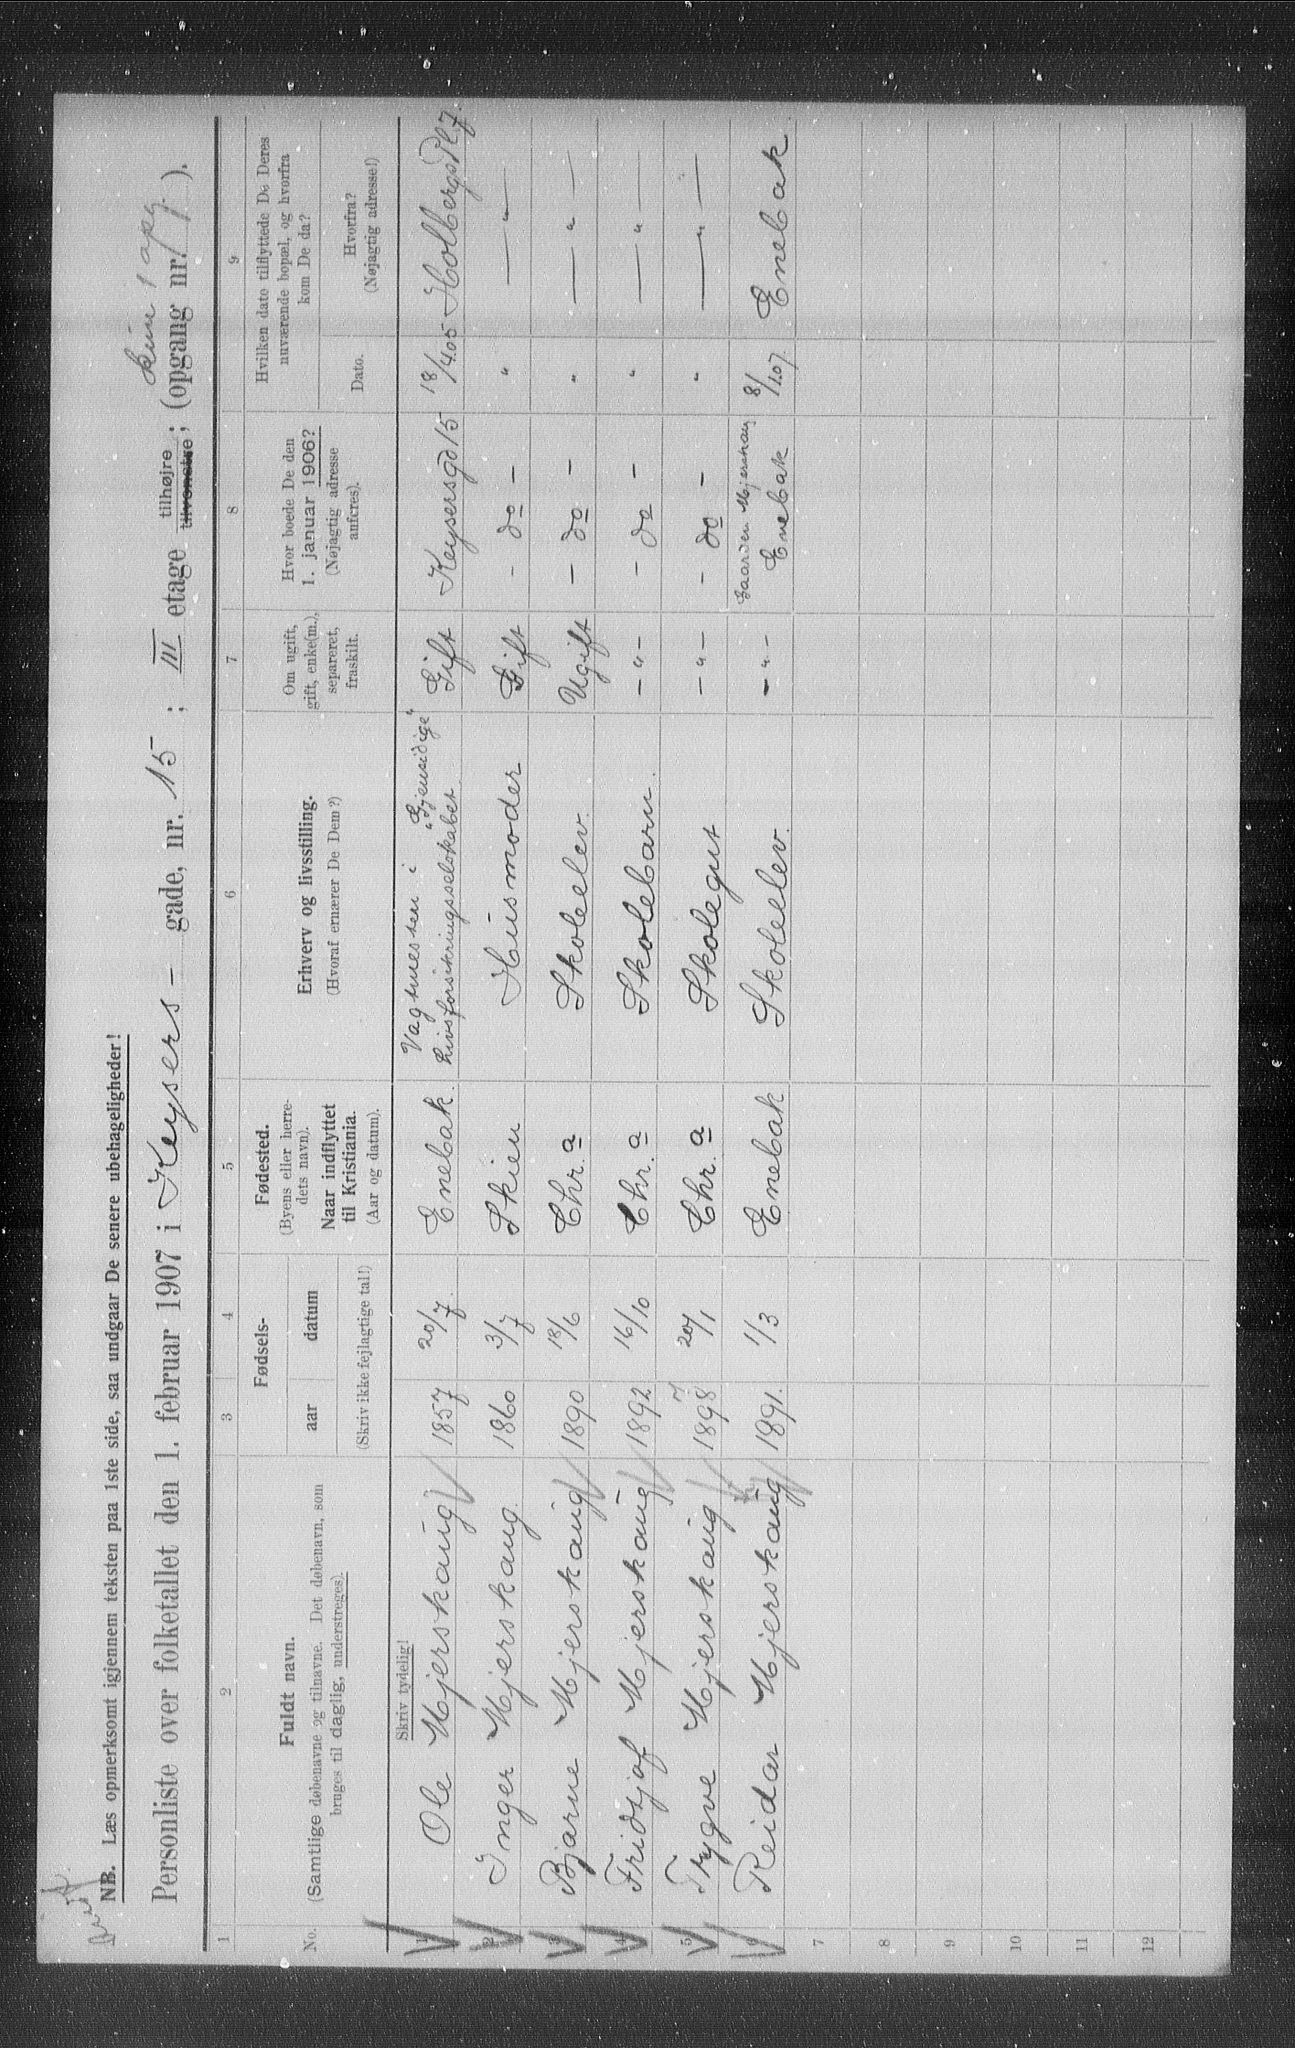 NB. Læs opmerksomt igjennem teksten paa 1ste side, saa undgaar De senere ubehageligheder!
kun 1 opg.
Personliste over folketallet den 1. februar 1907 i Keysers - gade, nr. 15 ; III etage tilhøjre tilvenstre ; (opgang nr. ).
1 2 3 4 5 6 7 8 9
No.
Fuldt navn.
(Samtlige døbenavne og tilnavne. Det døbenavn, som
bruges til daglig, understreges).
Fødsels-
aar datum
(Skriv ikke fejlagtige tal!)
Fødested.
(Byens eller herre-
dets navn).
Naar indflyttet
til Kristiania.
(Aar og datum).
Erhverv og livsstilling.
(Hvoraf ernærer De Dem?)
Om ugift,
gift, enke(m.),
separeret,
fraskilt.
Hvor boede De den
1. januar 1906?
(Nøjagtig adresse
anføres).
Hvilken dato tilflyttede De Deres
nuværende bopæl, og hvorfra
kom De da?
Dato.
Hvorfra?
(Nøjagtig adresse!)
Skriv tydelig!
1 Ole Mjerskaug 1857 20/7 Enebak. Vagtmester i "Gjensidige" Livsforsikringsselskabet. Gift Keysersgd 15 18/4.05 Holbergs Pl. 7.
2 Inger Mjerskaug. 1860 3/7 Skien Husmoder Gift - do - " — " —
3 Bjarne Mjerskaug 1890 18/6 Chr. a Skoleelev. Ugift - do - " — " —
4 Fridtjof Mjerskaug 1892 16/10 Chr. a Skolebarn. - " - - do - " — " —
5 Trygve Mjerskaug 1898 20/1 Chr. a Skolegut - " - - do - " — " —
6 Reidar Mjerskaug 1891. 1/3 Enebak Skoleelev. - " - Gaarden Mjerskaug Enebak 8/1.07. Enebak
7
8
9
10
11
12